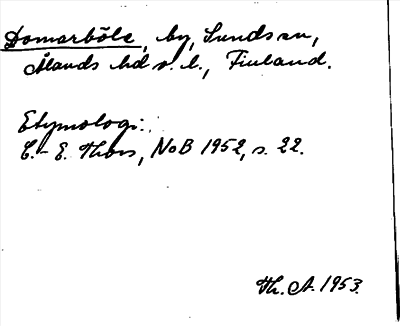 Domarböle, by, Sunds sn,
Ålands hd o. l., Finland.
Etymologi:
C.-E. Thors, NoB 1952, s. 22.
Th. A. 1953.